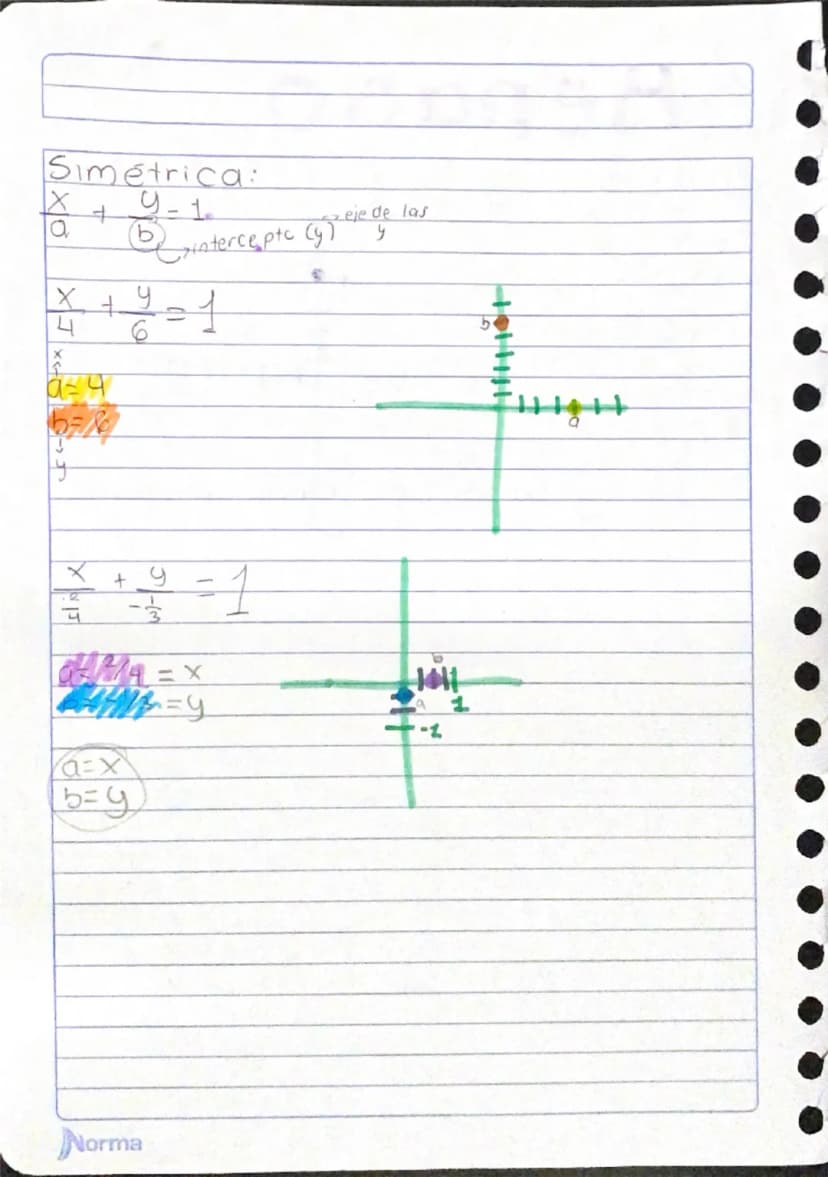 Simétrica:
x/a + y/b = 1
→ intercepto (y) → eje de las y
x/4 + y/6 = 1
x
a=4
b=6
y
b
a
x/(2/4) + y/(-1/3) = 1
a=2/4 = x
b=-1/3 = y
b
a
1
-1
a=x
b=y
Norma